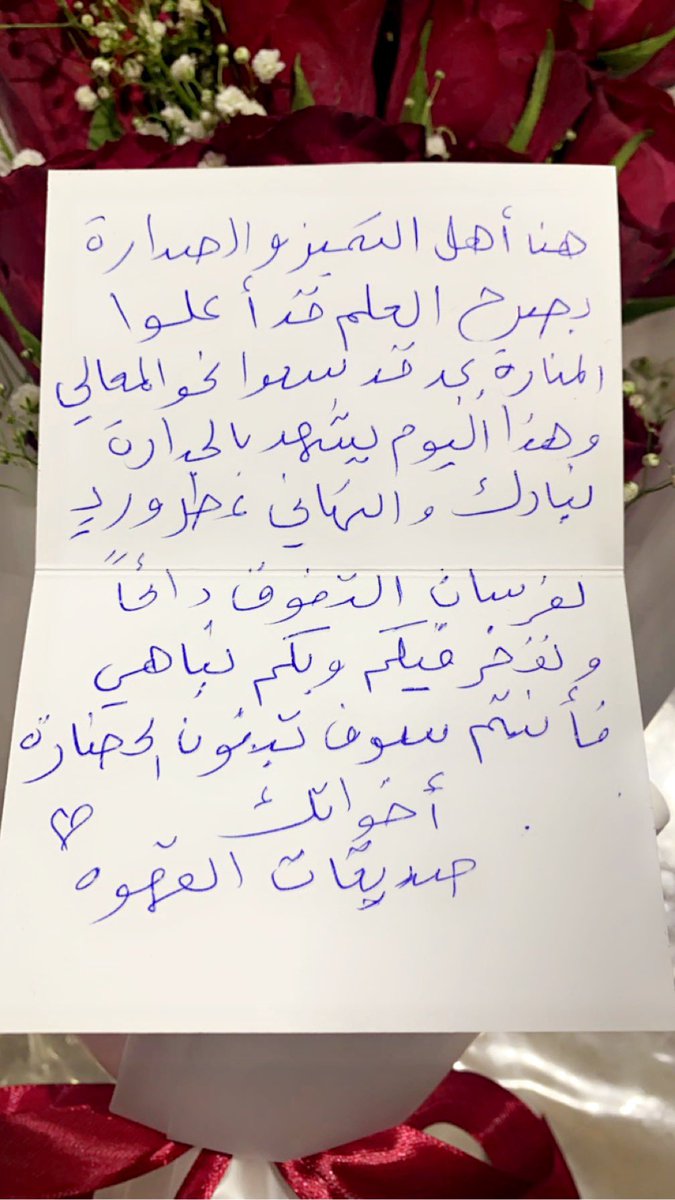 هنا أهل التميز والصدارة
بصرح العلم قد أعلوا
المنارة بجد قد سعوا نحو المعالي
وهذا اليوم يشهد بالجدارة
نبارك والتهاني عطر ورد
لفرسان التفوق دائماً
ونفخر فيكم وبكم نباهي
فأنتم سوف تبنون الحضارة
أخواتك
صديقات القهوه ♡